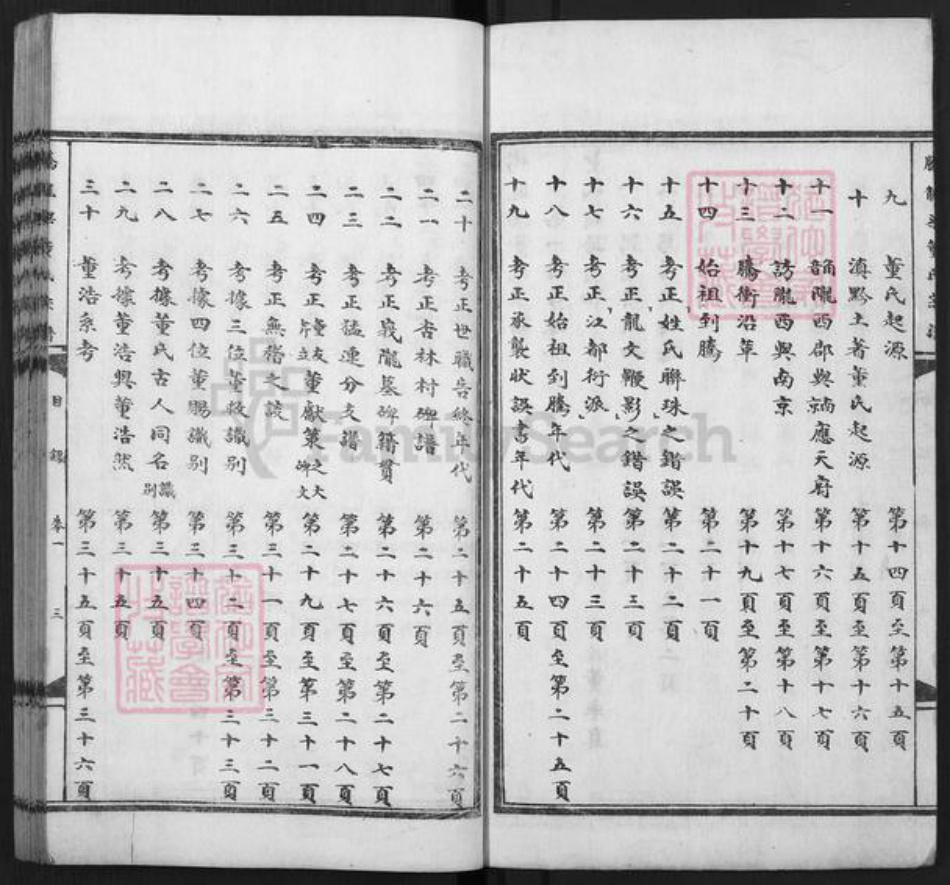 九 董氏起源 第十四頁至第十五頁
十 滇黔土著董氏起源 第十五頁至第十六頁
十一 韻隴西郡與 應天府 第十六頁至第十七頁
十二 訪隴西與南京 第十七頁至第十八頁
十三 騰衝沿革 第十九頁至第二十頁
十四 始祖到騰 第二十一頁
十五 考正姓氏聯珠之錯誤 第二十二頁
十六 考正龍文鞭影之錯誤 第二十三頁
十七 考正江都衍派 第二十三頁
十八 考正始祖到騰年代 第二十四頁至第二十五頁
十九 考正承襲狀誤書年代 第二十五頁
二十 考正世職告終年代 第二十五頁至第二十六頁
二一 考正杏林村碑譜 第二十六頁
二二 考正義隴墓碑籍貫 第二十六頁至第二十七頁
二三 考正猛連分支譜 第二十七頁至第二十八頁
二四 董獻策之大碑文 第二十九頁至第三十一頁
二五 考正無稽之談 第三十一頁至第三十二頁
二六 考據三位董救識別 第三十二頁至第三十三頁
二七 考據四位董賜識別 第三十四頁
二八 考據董氏古人同名識別 第三十五頁
二九 考據董浩興董浩然 第三十五頁
三十 董浩系考 第三十五頁至第三十六頁
目錄
卷一
三
FamilySearch